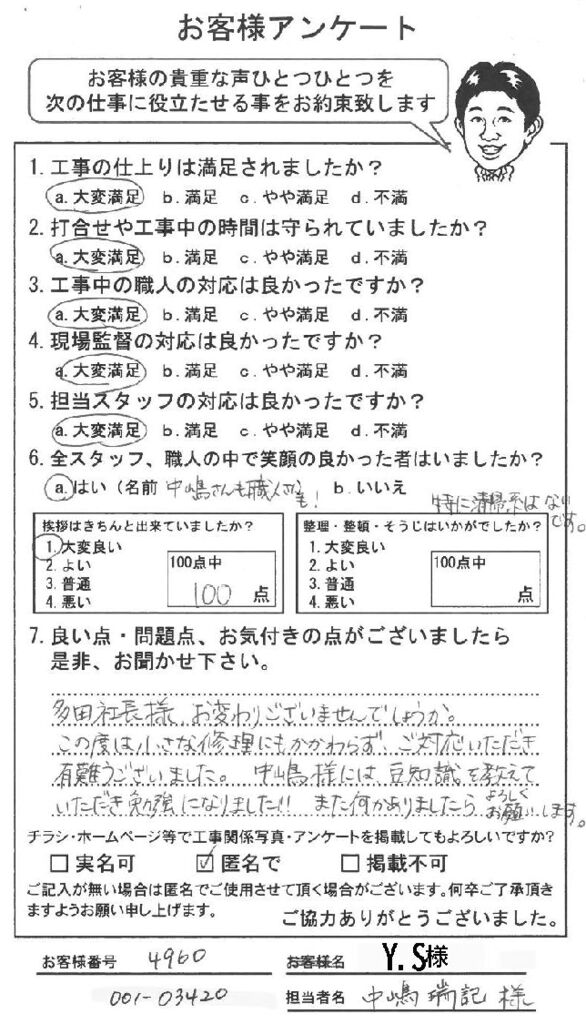 お客様アンケート
お客様の貴重な声ひとつひとつを
次の仕事に役立たせる事をお約束致します
1. 工事の仕上りは満足されましたか？
a. 大変満足 b. 満足 c. やや満足 d. 不満
2. 打合せや工事中の時間は守られていましたか？
a. 大変満足 b. 満足 c. やや満足 d. 不満
3. 工事中の職人の対応は良かったですか？
a. 大変満足 b. 満足 c. やや満足 d. 不満
4. 現場監督の対応は良かったですか？
a. 大変満足 b. 満足 c. やや満足 d. 不満
5. 担当スタッフの対応は良かったですか？
a. 大変満足 b. 満足 c. やや満足 d. 不満
6. 全スタッフ、職人の中で笑顔の良かった者はいましたか？
a. はい（名前 中嶋さんも職人さんも！ b. いいえ
特に清掃系はない
です。
挨拶はきちんと出来ていましたか？
1. 大変良い
2. よい
3. 普通
4. 悪い
100点中
100 点
整理・整頓・そうじはいかがでしたか？
1. 大変良い
2. よい
3. 普通
4. 悪い
100点中
点
7. 良い点・問題点、お気付きの点がございましたら
是非、お聞かせ下さい。
多田社長様 お変わりございませんでしょうか。
この度は小さな修理にもかかわらず、ご対応いただき
有難うございました。 中嶋様には豆知識を教えて
いただき勉強になりました!! また何かありましたらよろしく
お願いします。
チラシ・ホームページ等で工事関係写真・アンケートを掲載してもよろしいですか？
□ 実名可 ☑ 匿名で □ 掲載不可
ご記入が無い場合は匿名でご使用させて頂く場合がございます。何卒ご了承頂き
ますようお願い申し上げます。
ご協力ありがとうございました。
お客様番号 4960
お客様名 Y.S様
001-03420
担当者名 中嶋 瑞記 様